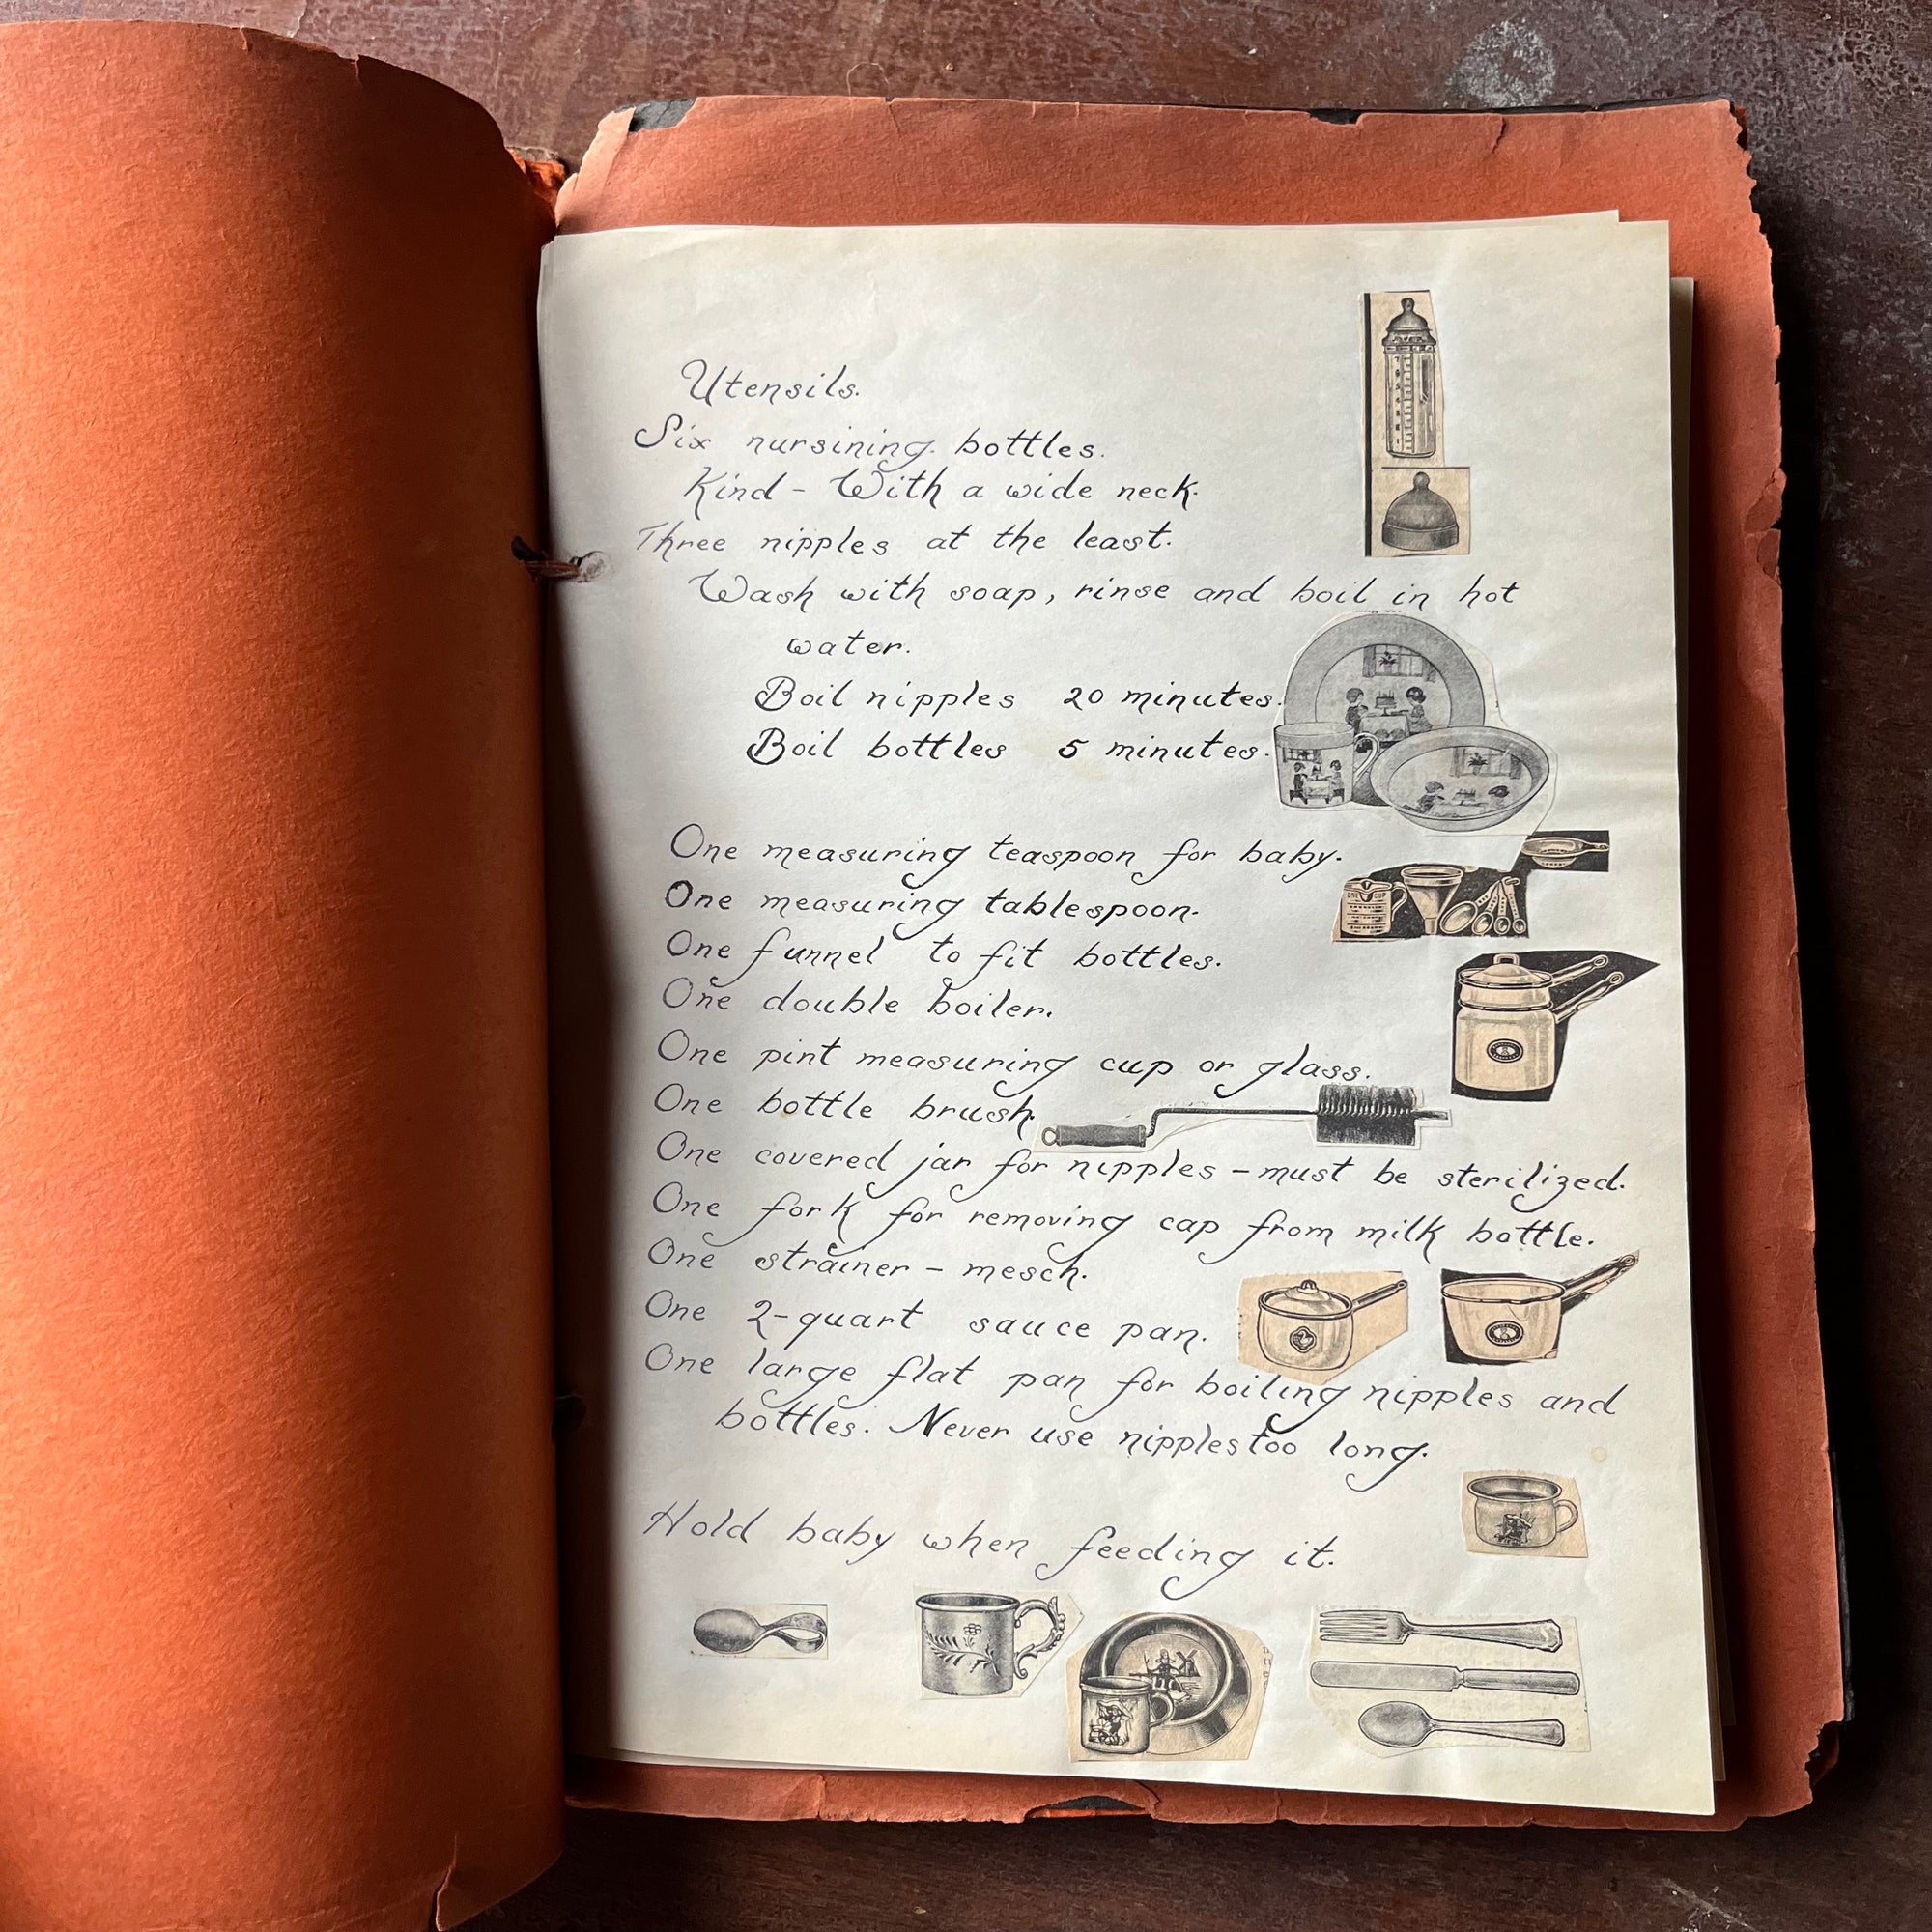 Utensils.
Six nursining bottles.
Kind - With a wide neck.
Three nipples at the least.
Wash with soap, rinse and boil in hot
water.
Boil nipples 20 minutes.
Boil bottles 5 minutes.
One measuring teaspoon for baby.
One measuring tablespoon.
One funnel to fit bottles.
One double boiler.
One pint measuring cup or glass.
One bottle brush.
One covered jar for nipples - must be sterilized.
One fork for removing cap from milk bottle.
One strainer - mesch.
One 2-quart sauce pan.
One large flat pan for boiling nipples and
bottles. Never use nipples too long.
Hold baby when feeding it.